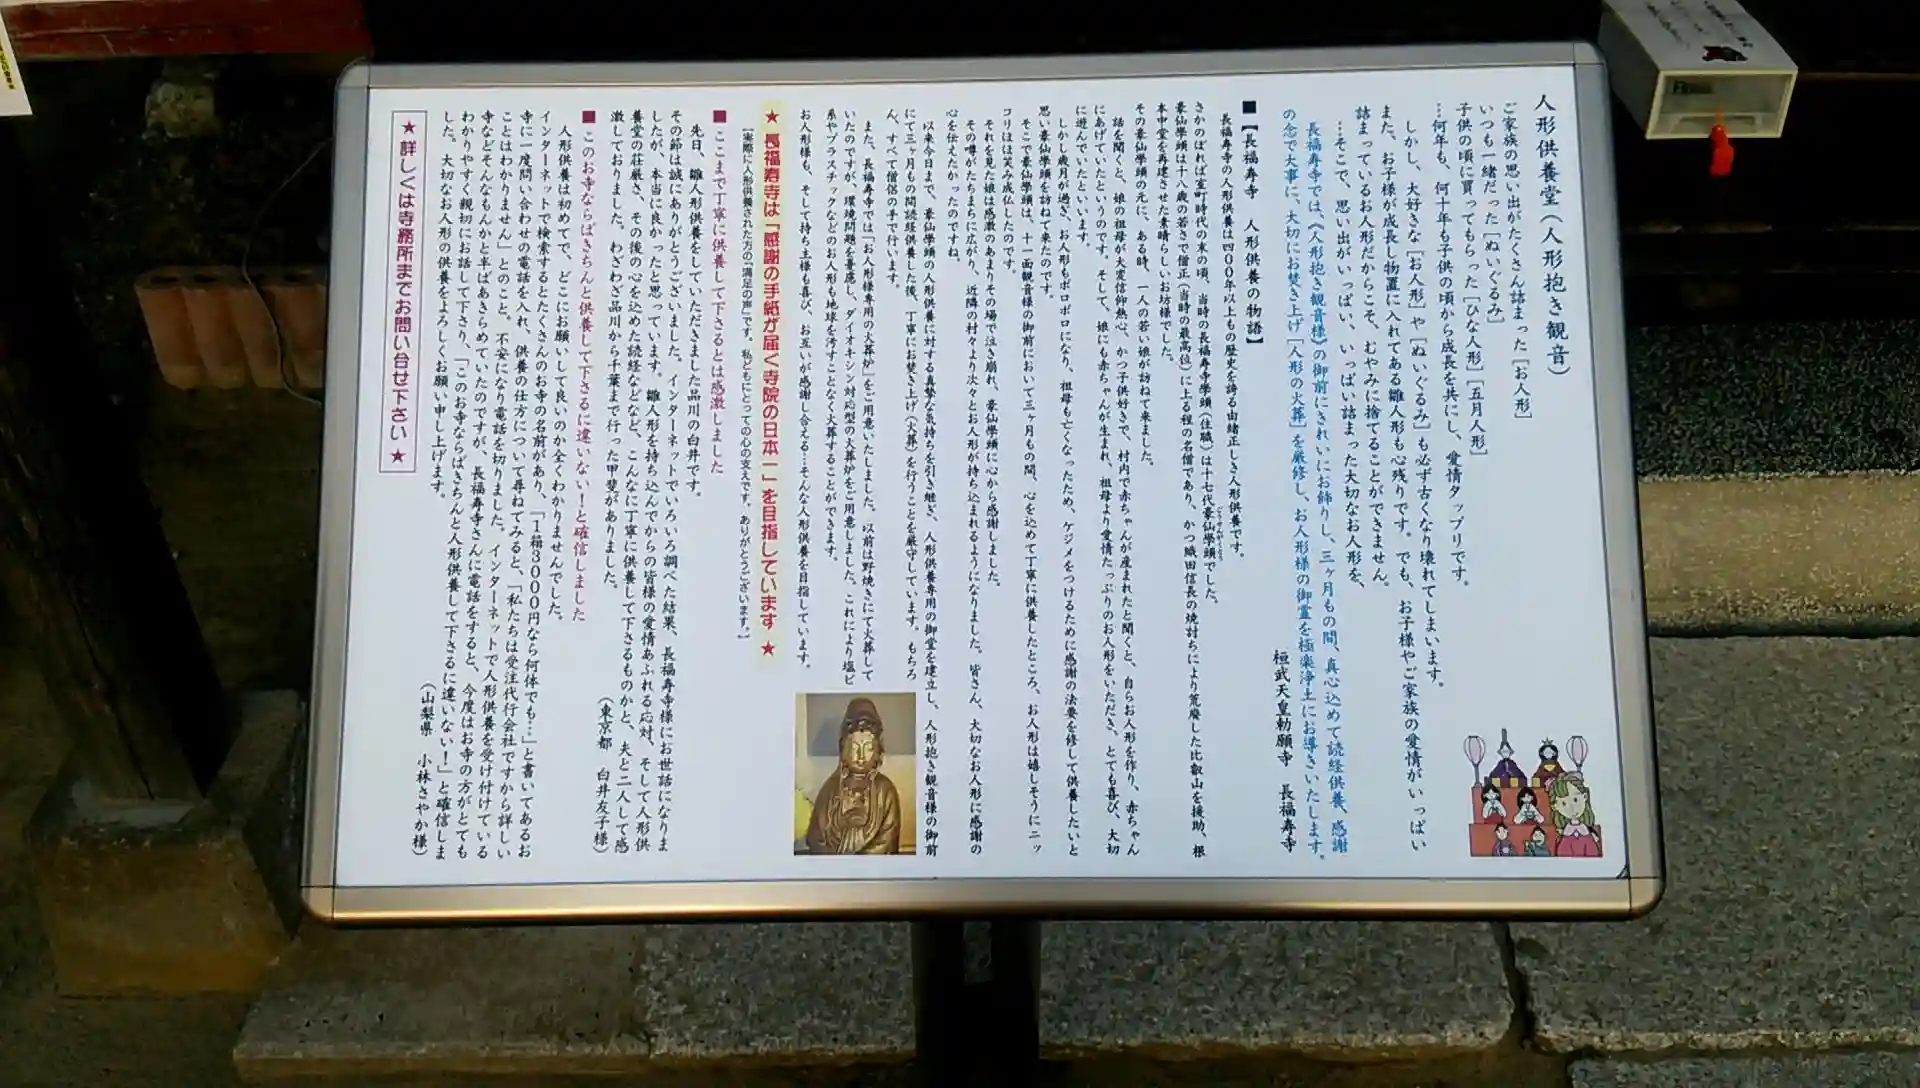 人形供養堂(人形抱き観音)
ご家族の思い出がたくさん詰まった[お人形]
いつも一緒だった[ぬいぐるみ]
子供の頃に買ってもらった[ひな人形][五月人形]
…何年も、何十年も子供の頃から成長を共にし、愛情タップリです。
しかし、大好きな[お人形]や[ぬいぐるみ]も必ず古くなり壊れてしまいます。
また、お子様が成長し物置に入れてある雛人形も心残りです。でも、お子様やご家族の愛情がいっぱい
詰まっているお人形だからこそ、むやみに捨てることができません。
…そこで、思い出がいっぱい、いっぱい詰まった大切なお人形を、
長福寿寺では、《人形抱き観音様》の御前にきれいにお飾りし、三ヶ月もの間、真心込めて読経供養、感謝
の念で大事に、大切にお焚き上げ[人形の火葬]を厳修し、お人形様の御霊を極楽浄土にお導きいたします。
桓武天皇勅願寺 長福寿寺
■【長福寿寺 人形供養の物語】
長福寿寺の人形供養は四00年以上もの歴史を誇る由緒正しき人形供養です。
さかのぼれば室町時代の末の頃、当時の長福寿寺學頭(住職)は十七代豪仙學頭でした。
豪仙學頭は十八歳の若さで僧正(当時の最高位)に上る程の名僧であり、かつ織田信長の焼討ちにより荒廃した比叡山を援助、根
本中堂を再建させた素晴らしいお坊様でした。
その豪仙學頭の元に、ある時、一人の若い娘が訪ねて来ました。
話を聞くと、娘の祖母が大変信仰熱心、かつ子供好きで、村内で赤ちゃんが産まれたと聞くと、自らお人形を作り、赤ちゃん
にあげていたというのです。そして、娘にも赤ちゃんが生まれ、祖母より愛情たっぷりのお人形をいただき、とても喜び、大切
に遊んでいたといいます。
しかし歳月が過ぎ、お人形もボロボロになり、祖母も亡くなったため、ケジメをつけるために感謝の法要を修して供養したいと
思い豪仙學頭を訪ねて来たのです。
そこで豪仙學頭は、十一面観音様の御前において三ヶ月もの間、心を込めて丁寧に供養したところ、お人形は嬉しそうにニッ
コリほほ笑み成仏したのです。
それを見た娘は感激のあまりその場で泣き崩れ、豪仙學頭に心から感謝しました。
その噂がたちまちに広がり、近隣の村々より次々とお人形が持ち込まれるようになりました。皆さん、大切なお人形に感謝の
心を伝えたかったのですね。
以来今日まで、豪仙學頭の人形供養に対する真摯な気持ちを引き継ぎ、人形供養専用の御堂を建立し、人形抱き観音様の御前
にて三ヶ月もの間読経供養した後、丁寧にお焚き上げ(火葬)を行うことを厳守しています。もちろ
ん、すべて僧侶の手で行います。
また、長福寿寺では「お人形様専用の火葬炉」をご用意いたしました。以前は野焼きにて火葬して
いたのですが、環境問題を考慮し、ダイオキシン対応型の火葬炉をご用意しました。これにより塩ビ
系やプラスチックなどのお人形も地球を汚すことなく火葬することができます。
お人形様も、そして持ち主様も喜び、お互いが感謝し合える…そんな人形供養を目指しています。
★ 長福寿寺は「感謝の手紙が届く寺院の日本一」を目指しています ★
[実際に人形供養された方の「満足の声」です。私どもにとっての心の支えです。ありがとうございます。]
■ここまで丁寧に供養して下さるとは感激しました
先日、雛人形供養をしていただきました品川の白井です。
その節は誠にありがとうございました。インターネットでいろいろ調べた結果、長福寿寺様にお世話になりま
したが、本当に良かったと思っています。雛人形を持ち込んでからの皆様の愛情あふれる応対、そして人形供
養堂の荘厳さ、その後の心を込めた読経などなど、こんなに丁寧に供養して下さるものかと、夫と二人して感
激しておりました。わざわざ品川から千葉まで行った甲斐がありました。
(東京都 白井友子様)
■このお寺ならばきちんと供養して下さるに違いない!と確信しました
人形供養は初めてで、どこにお願いして良いのか全くわかりませんでした。
インターネットで検索するとたくさんのお寺の名前があり、「1箱3000円なら何体でも…」と書いてあるお
寺に一度問い合わせの電話を入れ、供養の仕方について尋ねてみると、「私たちは受注代行会社ですから詳しい
ことはわかりません」とのこと。不安になり電話を切りました。インターネットで人形供養を受け付けている
寺などそんなもんかと半ばあきらめていたのですが、長福寿寺さんに電話をすると、今度はお寺の方がとても
わかりやすく親切にお話して下さり、「このお寺ならばきちんと人形供養して下さるに違いない!」と確信しま
した。大切なお人形の供養をよろしくお願い申し上げます。
(山梨県 小林さやか様)
★ 詳しくは寺務所までお問い合せ下さい ★